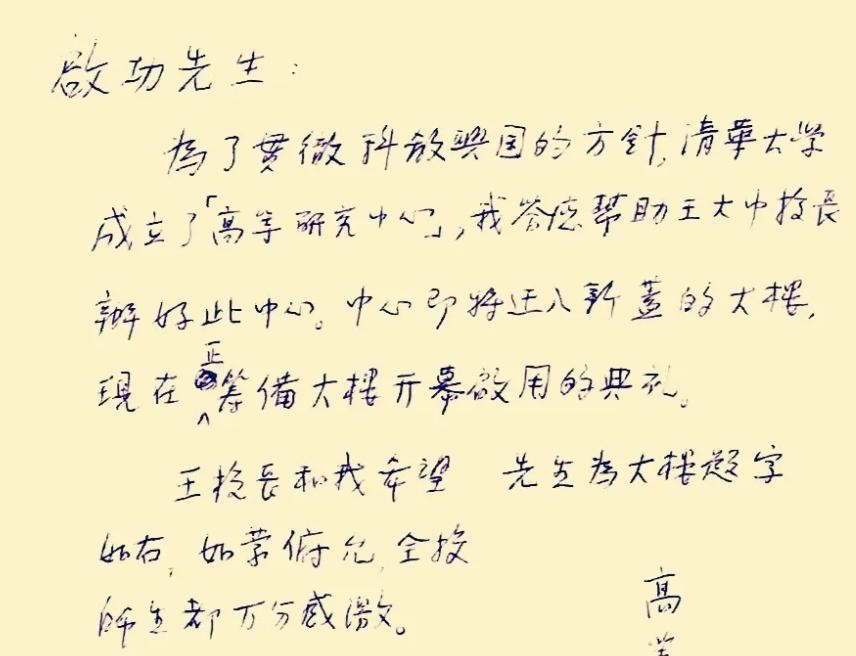 啟功先生：
為了貫徹科教興国的方針,清華大学
成立了「高等研究中心」,我答應幫助王大中校長
辦好此中心。中心即将迁入新蓋的大楼,
現在正筹備大楼开幕啟用的典礼。
王校長和我希望 先生為大楼題字
如右,如蒙俯允,全校
師生都万分感激。
高
等